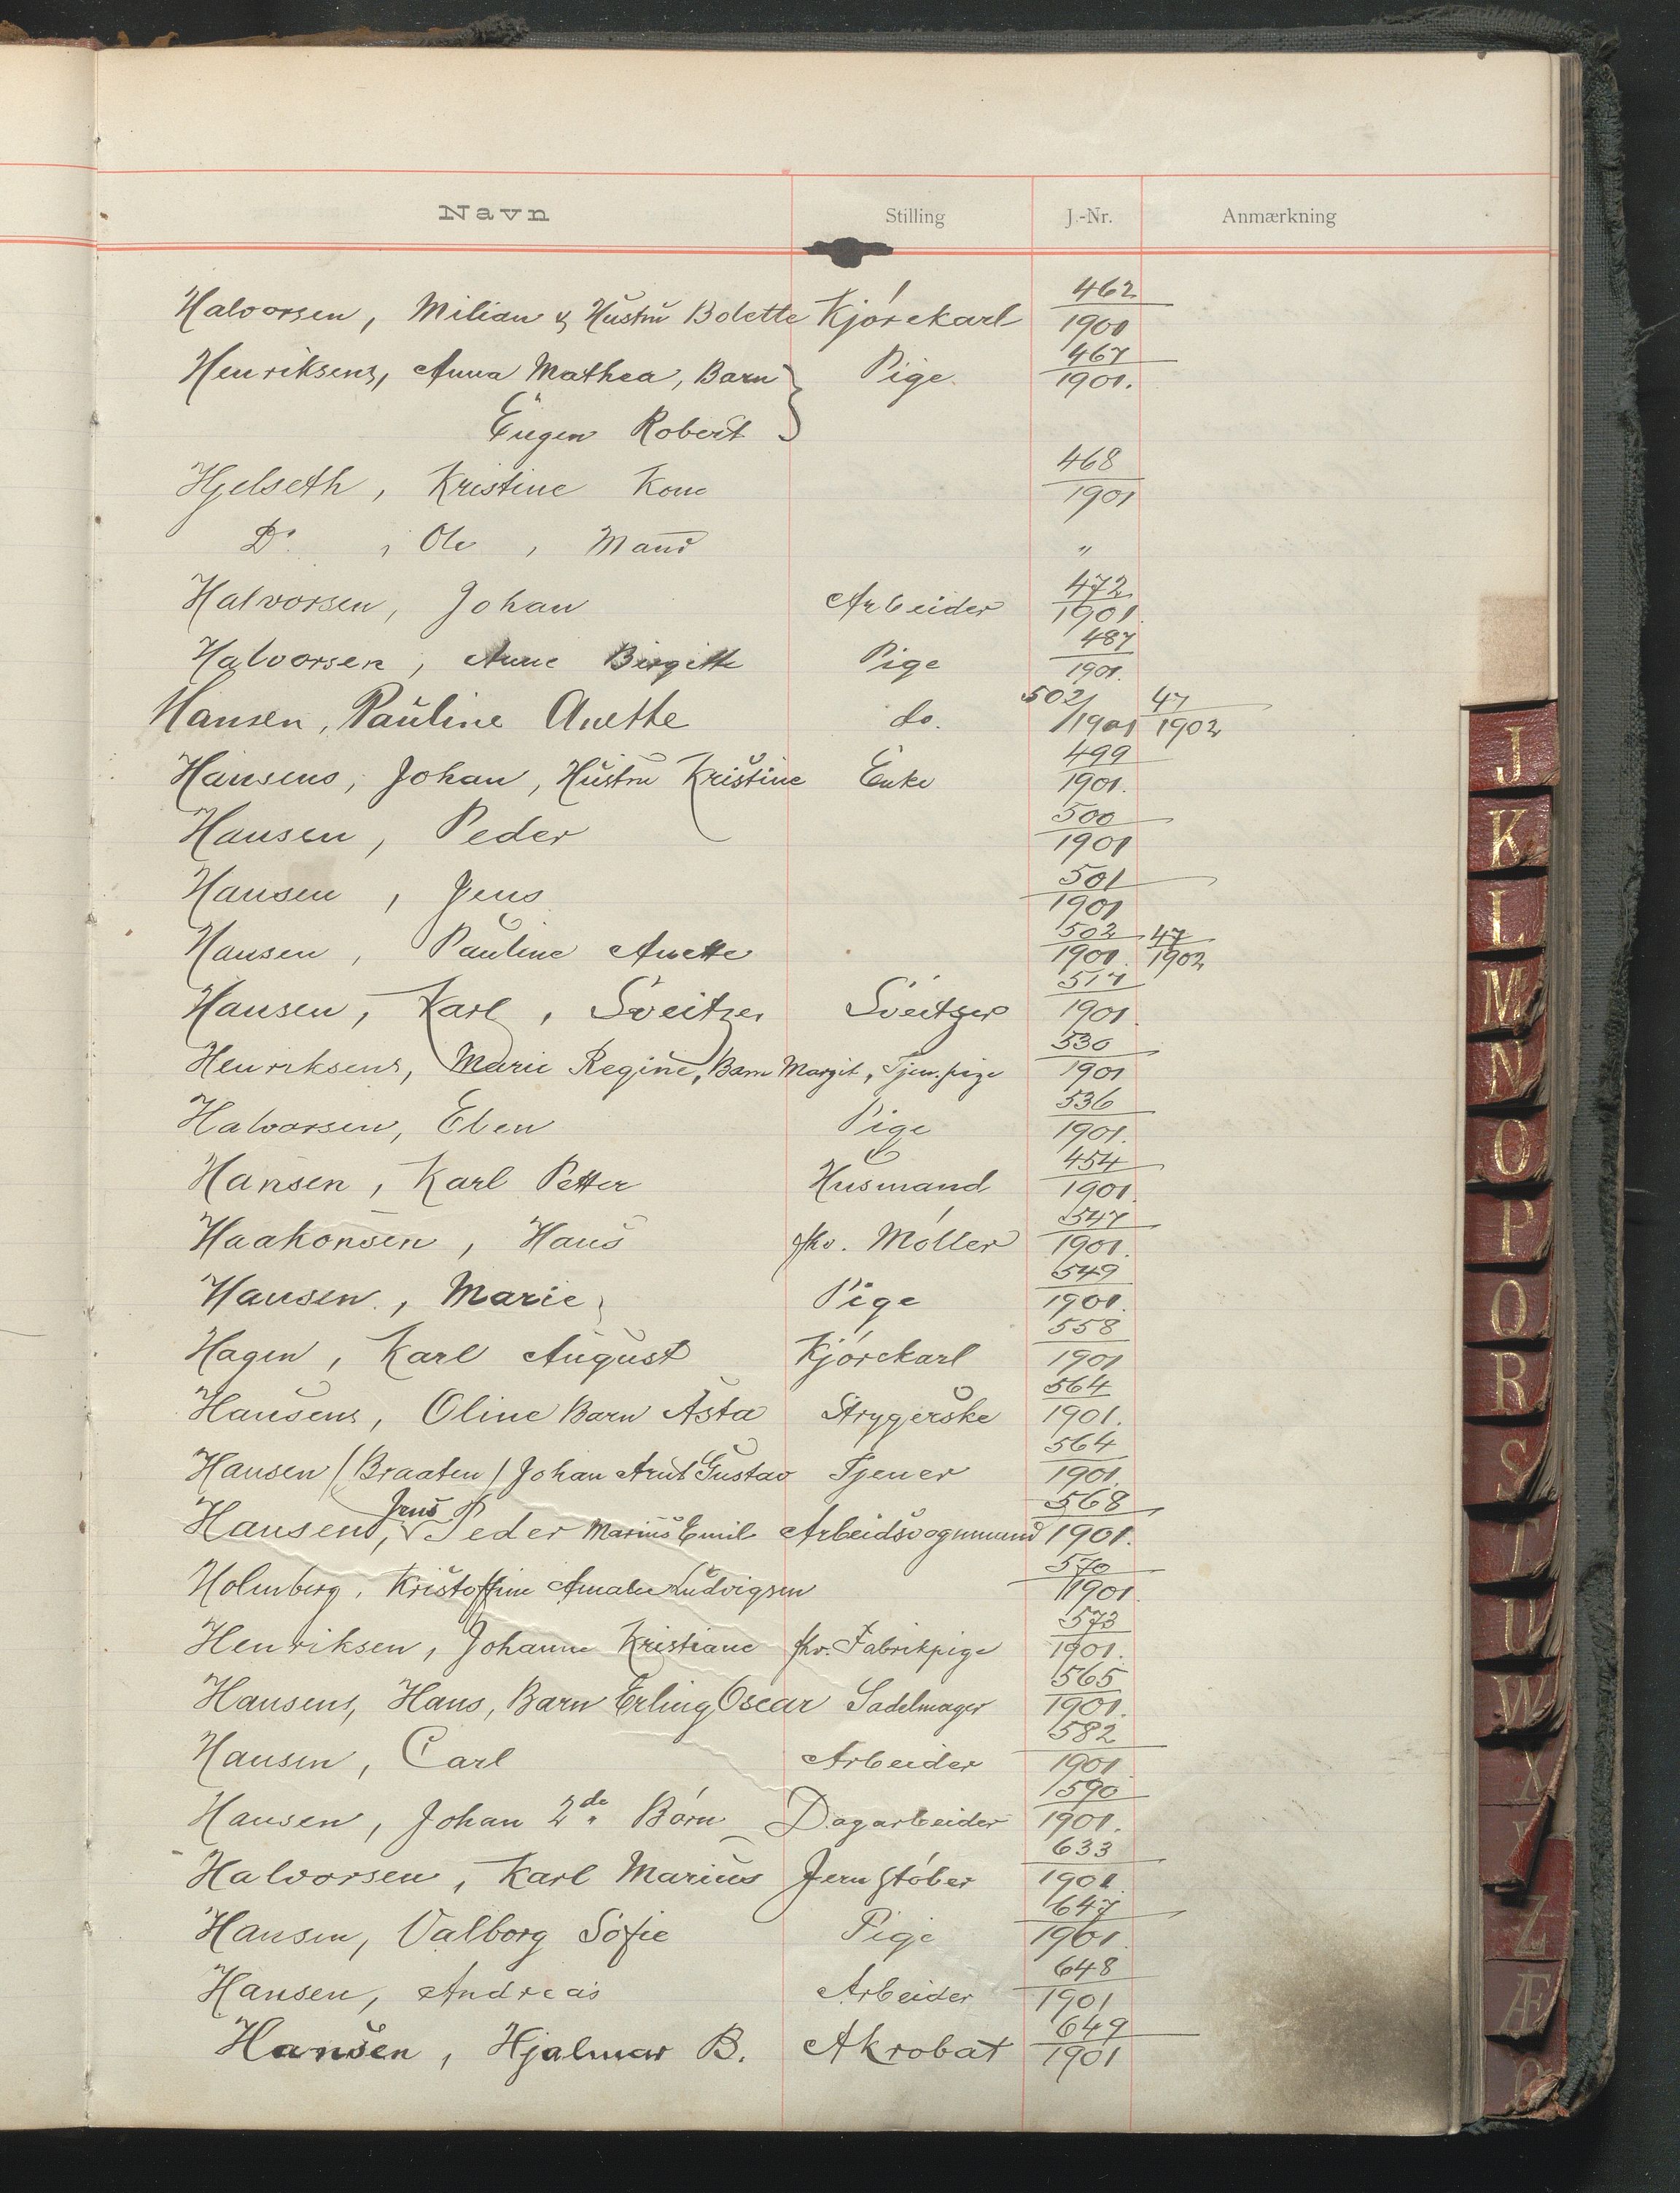 Navn Stilling J.-Nr. Anmærkning
Halvorsen, Milian & Hustru Bolette Kjørekarl 462/1901
Henriksens, Anna Mathea, Barn Pige 467/1901.
Eugen Robert
Hjelseth, Kristine Kone 468/1901
Do. , Ole , Mand "
Halvorsen, Johan Arbeider 472/1901
Halvorsen, Anne Birgitte Pige 487/1901.
Hansen, Pauline Anette do. 502/1901 47/1902
Hansens, Johan, Hustru Kristine Enke 499/1901.
Hansen, Peder 500/1901
Hansen, Jens 501/1901
Hansen, Pauline Anette 502/1901 47/1902
Hansen, Karl, Sveitzer Sveitzer 517/1901
Henriksens, Marie Regine, Barn Margit, Tjen.pige 530/1901
Halvorsen, Elen Pige 536/1901.
Hansen, Karl Petter Husmand 454/1901.
Haakonsen, Hans fhv. Møller 547/1901.
Hansen, Marie Pige 549/1901.
Hagen, Karl August Kjørekarl 558/1901
Hansens, Oline Barn Asta Strygerske 564/1901.
Hansen (Braaten) Johan Gustav Tjener 564/1901.
Hansen, Jens Peder Marius Emil Arbeidsvognmand 568/1901.
Holmberg, Kristoffine Amalie Ludvigsen 570/1901
Henriksen, Johanne Kristiane fhv. Fabrikpige 573/1901.
Hansens, Hans, Barn Erling Oscar Sadelmager 565/1901.
Hansen, Carl Arbeider 582/1901
Hansen, Johan 2de Børn Dagarbeider 590/1901.
Halvorsen, Karl Marius Jernstøber 633/1901
Hansen, Valborg Sofie Pige 647/1901.
Hansen, Andreas Arbeider 648/1901
Hansen, Hjalmar B. Akrobat 649/1901
J
K
L
M
N
O
P
Q
R
S
T
U
W
X
Z
Æ